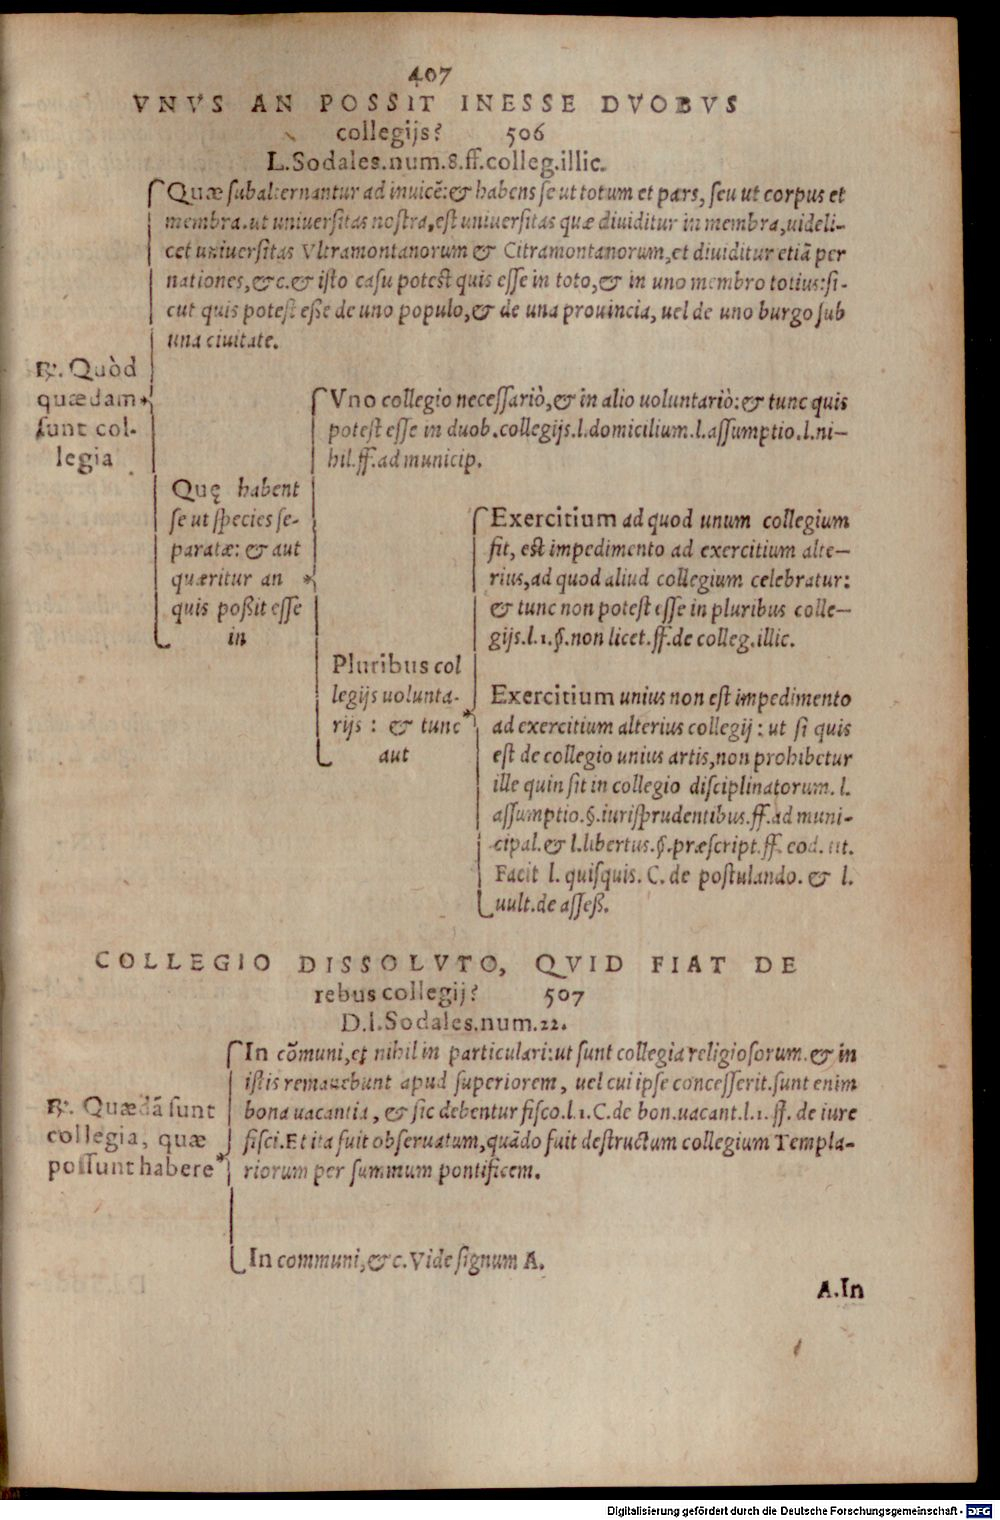 407
VNVS AN POSSIT INESSE DVOBVS
collegijs? 506
L.Sodales.num.8.ff.colleg.illic.
Quæ subalternantur ad inuicē:& habens se ut totum et pars, seu ut corpus et
membra.ut uniuersitas nostra,est uniuersitas quæ diuiditur in membra,uideli-
cet uniuersitas Vltramontanorum & Citramontanorum,et diuiditur etiā per
nationes,&c.& isto casu potest quis esse in toto,& in uno membro totius:si-
cut quis potest esse de uno populo,& de una prouincia, uel de uno burgo sub
una ciuitate.
℞. Quòd
quædam
sunt col-
legia
Vno collegio necessariò,& in alio uoluntariò:& tunc quis
potest esse in duob.collegijs.l.domicilium.l.assumptio.l.ni-
hil.ff.ad municip.
Quę habent
se ut species se-
paratæ: & aut
quæritur an
quis poßit esse
in
Exercitium ad quod unum collegium
fit, est impedimento ad exercitium alte-
rius,ad quod aliud collegium celebratur:
& tunc non potest esse in pluribus colle-
gijs.l.1.§.non licet.ff.de colleg.illic.
Pluribus col
legijs uolunta-
rijs : & tunc
aut
Exercitium unius non est impedimento
ad exercitium alterius collegij : ut si quis
est de collegio unius artis,non prohibetur
ille quin sit in collegio disciplinatorum. l.
assumptio.§.iurisprudentibus.ff.ad muni-
cipal.& l.libertus.§.præscript.ff. eod. tit.
Facit l. quisquis. C. de postulando. & l.
uult.de asseß.
COLLEGIO DISSOLVTO, QVID FIAT DE
rebus collegij? 507
D.l.Sodales.num.22.
In cōmuni,et nihil in particulari:ut sunt collegia religiosorum.& in
istis remanebunt apud superiorem, uel cui ipse concesserit.sunt enim
bona uacantia, & sic debentur fisco.l.1.C.de bon.uacant.l.1. ff. de iure
fisci.Et ita fuit obseruatum,quādo fuit destructum collegium Templa-
riorum per summum pontificem.
℞. Quædā sunt
collegia, quæ
possunt habere
In communi,&c.Vide signum A.
A.In
Digitalisierung gefördert durch die Deutsche Forschungsgemeinschaft - DFG